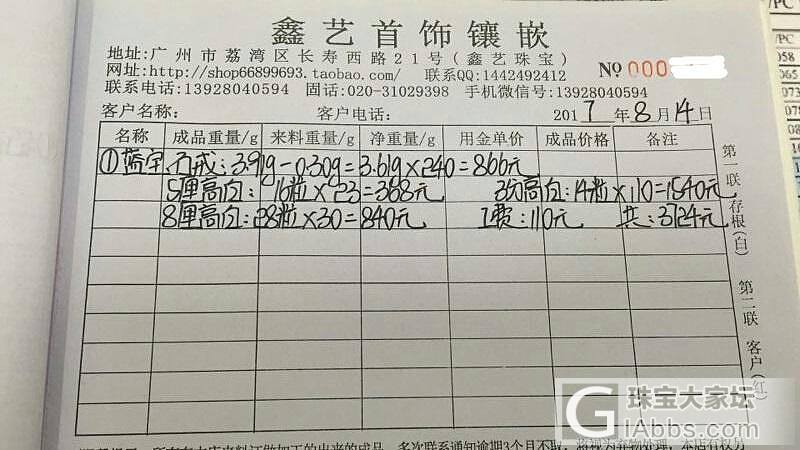 鑫艺首饰镶嵌
地址:广州市荔湾区长寿西路21号(鑫艺珠宝)
网址:http://shop66899693.taobao.com/ 联系QQ:1442492412 No 000
联系电话:13928040594 固话:020-31029398 手机微信号:13928040594
客户名称: 客户电话: 2017年8月14日
名称 成品重量/g 来料重量/g 净重量/g 用金单价 成品价格 备注
①蓝宝石戒:3.91g-0.30g=3.61g×240=866元
5厘高白:16粒×23=368元 3分高白:14粒×110=1540元
8厘高白:28粒×30=840元 工费:110元 共:3724元
第一联存根(白)
第二联 客户(红)
多次联系通知逾期3个月不取
珠宝大家坛
GIAbbs.com
/PC
/PC
058